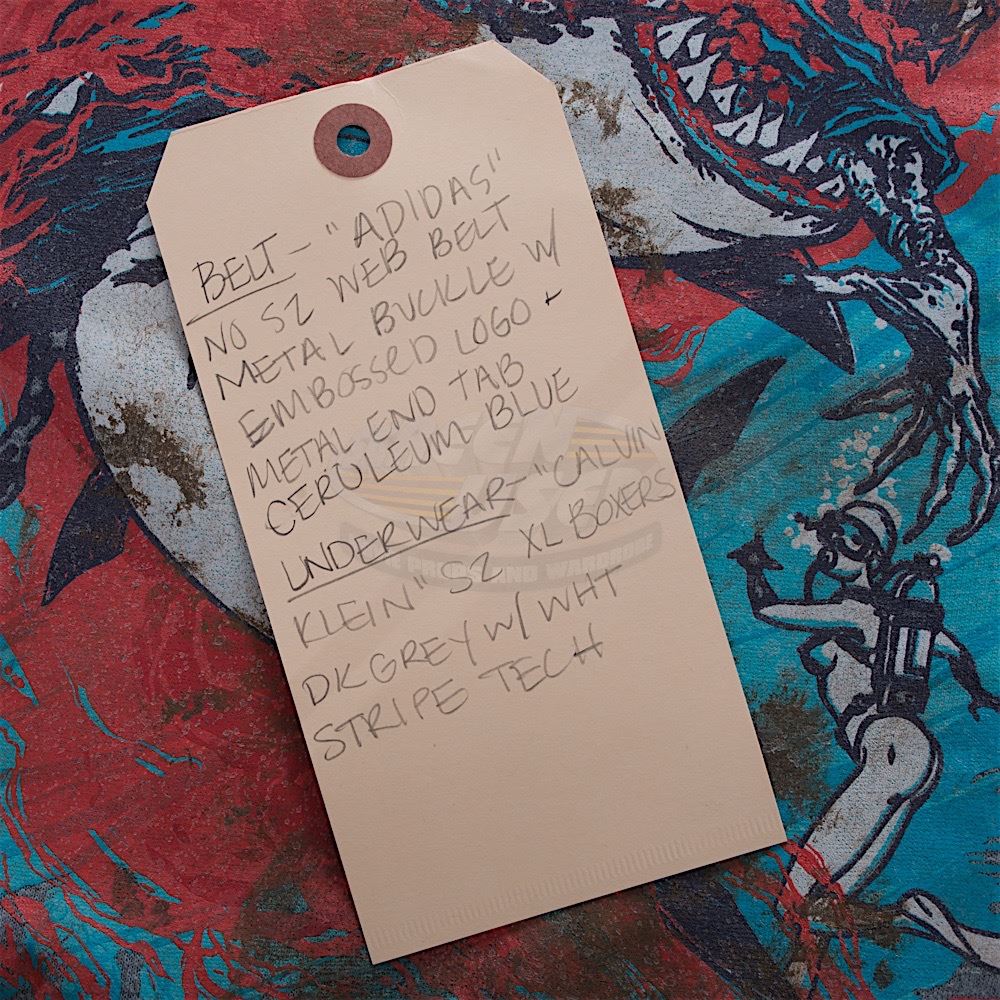 BELT - "ADIDAS"
NO SZ WEB BELT
METAL BUCKLE W/
EMBOSSED LOGO +
METAL END TAB
CERULEUM BLUE
UNDERWEAR - "CALVIN
KLEIN" SZ XL BOXERS
DK GREY W/ WHT
STRIPE TECH